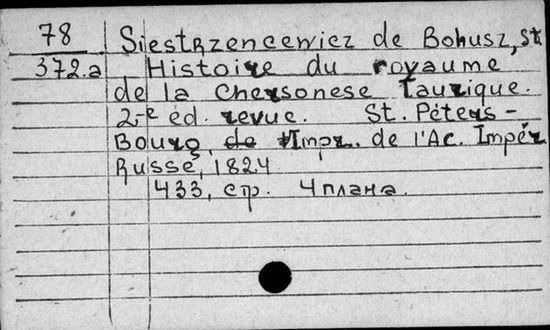 78 Siestrzencewicz de Bohusz, St.
372.a Histoire du royaume
de la Chersonese Taurique.
2-e ed. revue. St. Péters-
Bourg, de Impr. de l'Ac. Impér.
Russe, 1824
433, стр. 4 плана.